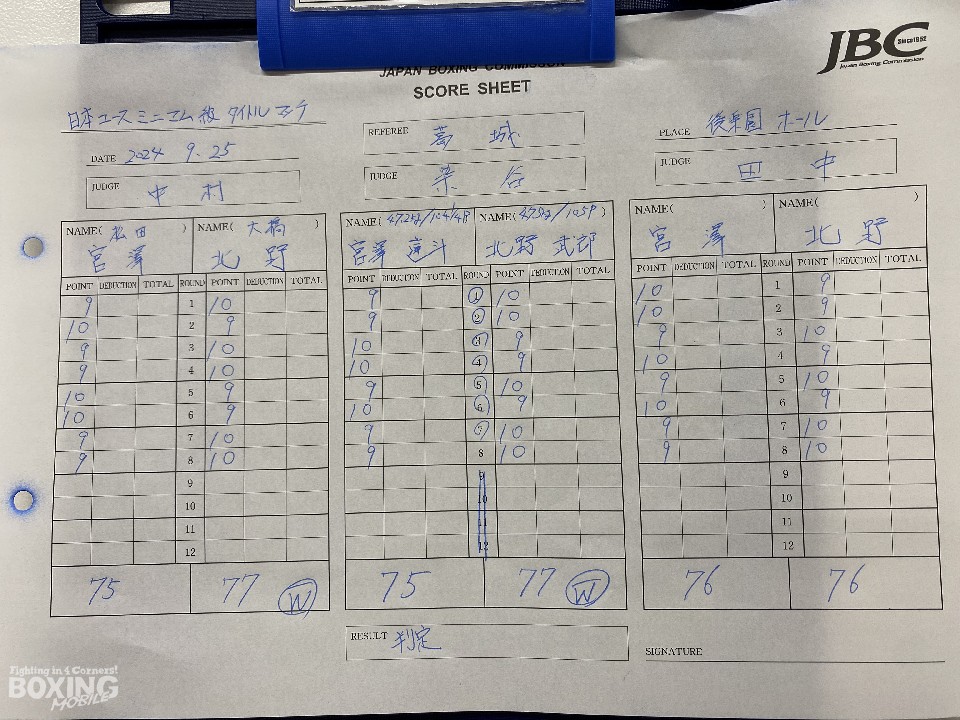 JBC
Since1952
Japan Boxing Commission
JAPAN BOXING COMMISSION
SCORE SHEET
日本ユースミニマム級 タイトルマッチ
DATE 2024 9.25
REFEREE 葛城
PLACE 後楽園ホール
JUDGE 中村
JUDGE 染谷
JUDGE 田中
NAME( 松田 ) NAME( 大橋 ) NAME( 47.2kg/104 ) NAME( 47.5kg/105P ) NAME( ) NAME( )
宮澤 北野 宮澤蓮斗 北野武郎 宮澤 北野
POINT DEDUCTION TOTAL ROUND POINT DEDUCTION TOTAL POINT DEDUCTION TOTAL ROUND POINT DEDUCTION TOTAL POINT DEDUCTION TOTAL ROUND POINT DEDUCTION TOTAL
9 1 10 9 1 10 10 1 9
10 2 9 9 2 10 10 2 9
9 3 10 10 3 9 9 3 10
9 4 10 10 4 9 10 4 9
10 5 9 9 5 10 9 5 10
10 6 9 10 6 9 10 6 9
9 7 10 9 7 10 9 7 10
9 8 10 9 8 10 9 8 10
9 9 9
10 10 10
11 11 11
12 12 12
75 77 W 75 77 W 76 76
RESULT 判定
SIGNATURE
Fighting in 4 Corners!
BOXING
MOBILE